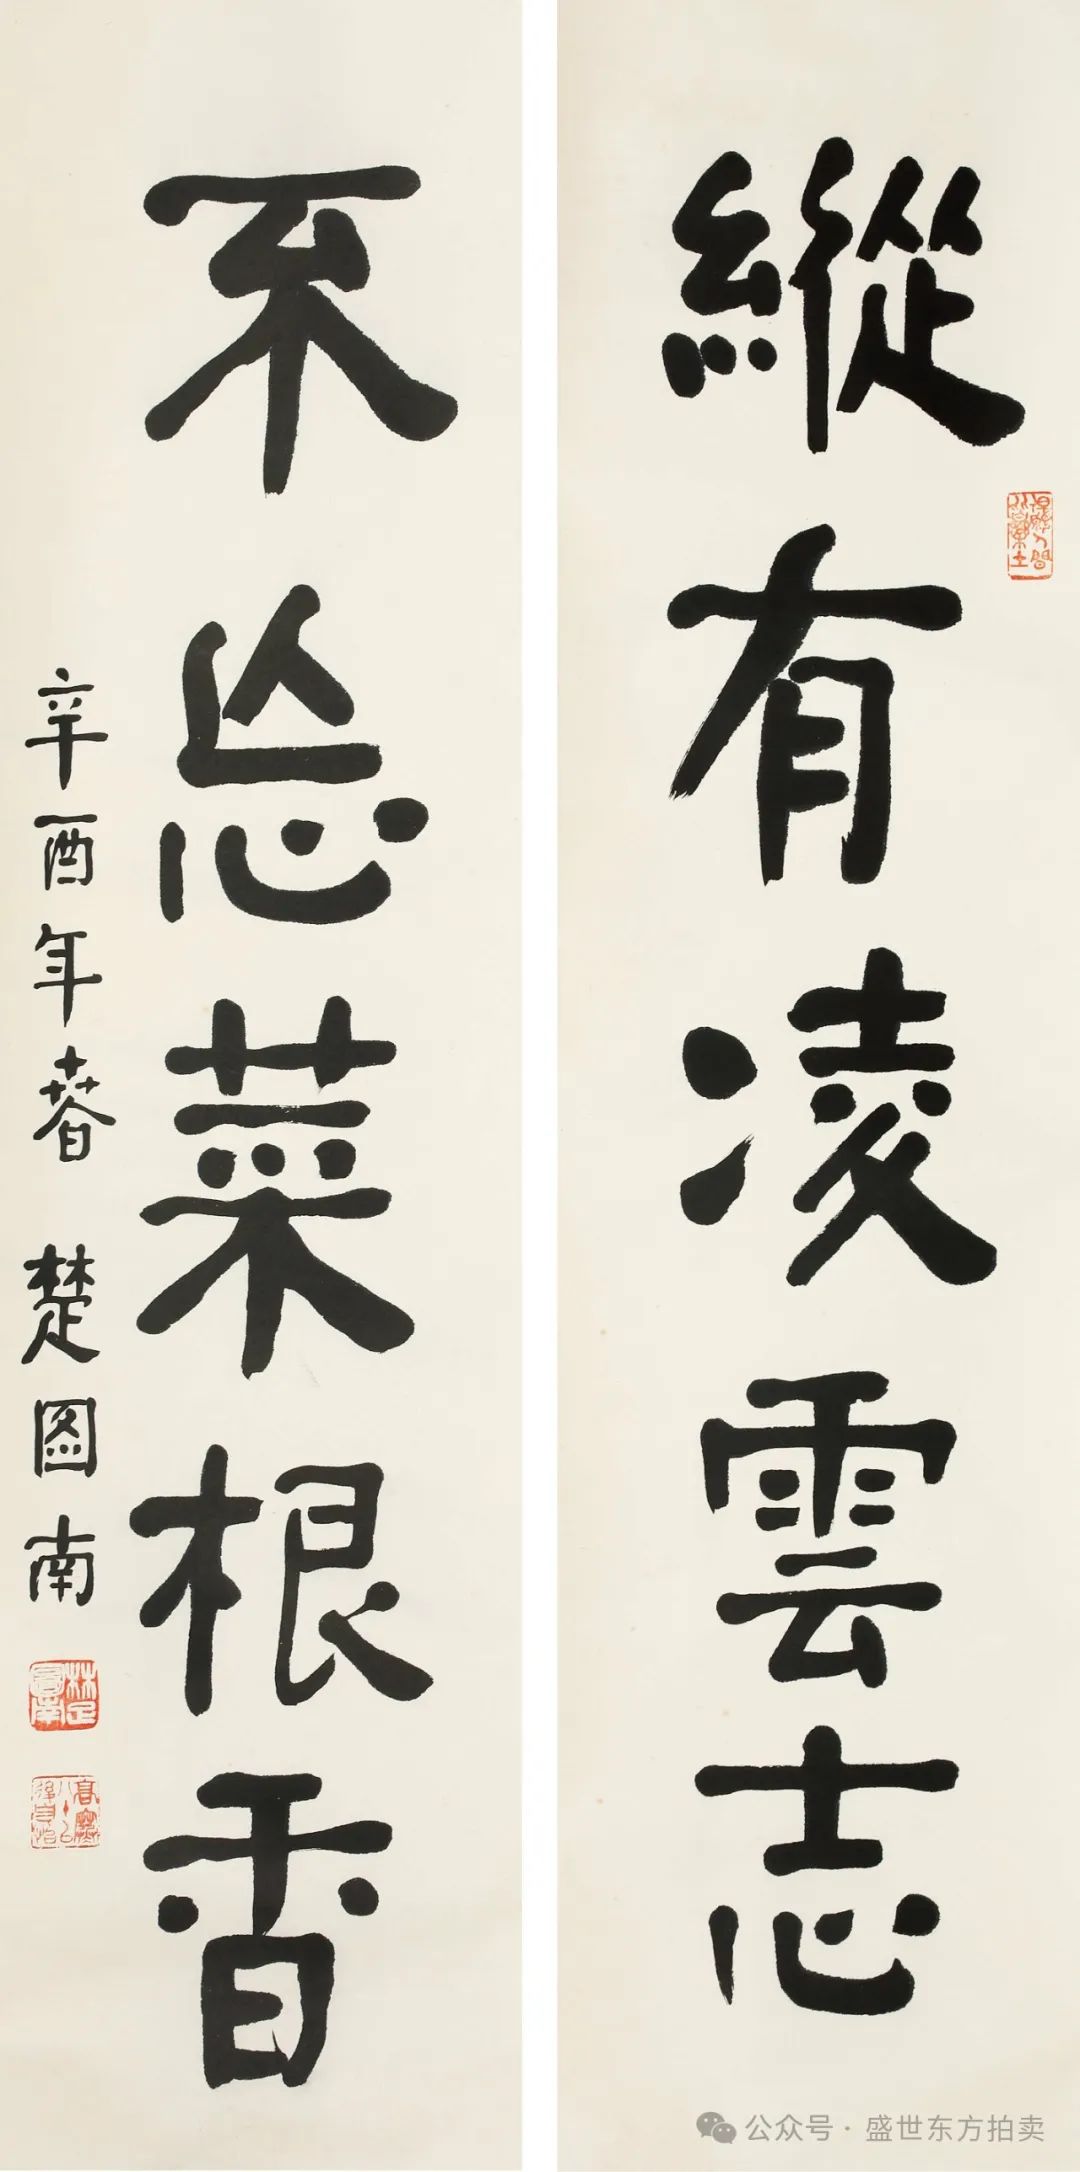 縱有凌雲志
不忘菜根香
辛酉年春 楚图南
楚圖南
公众号·盛世东方拍卖